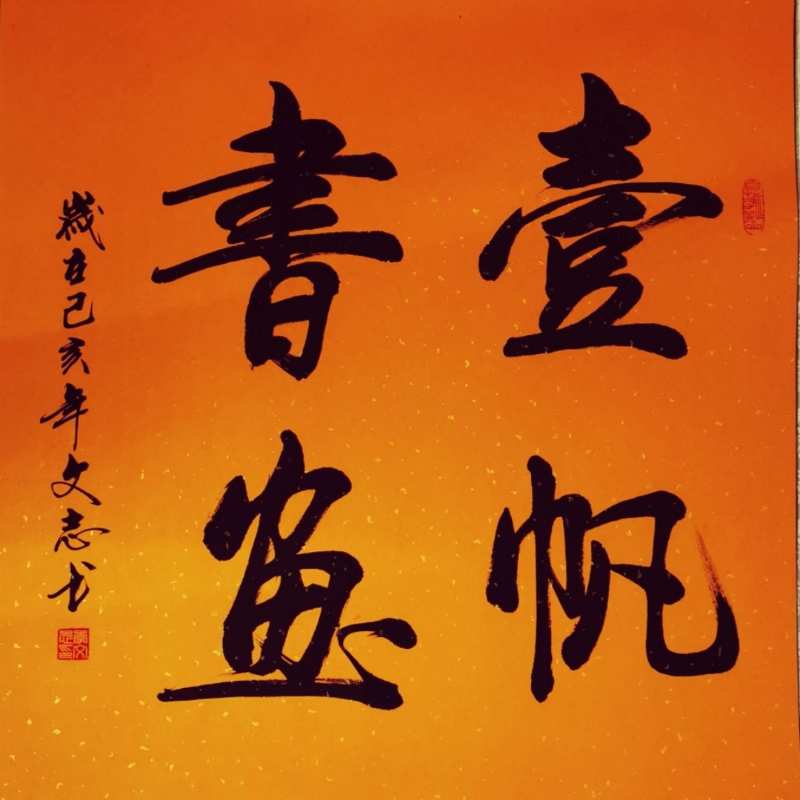 壹帆
書畫
歲在己亥年文志书